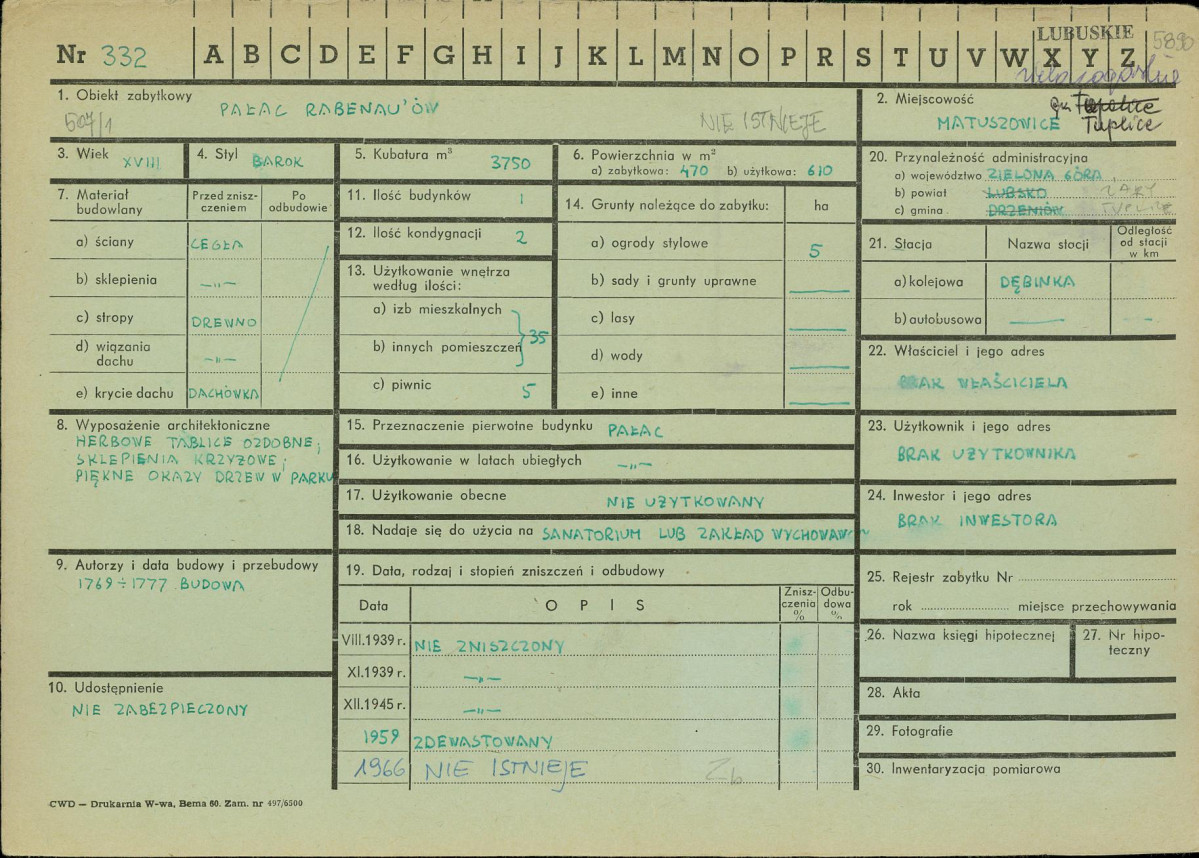 LUBUSKIE
Nr 332 A B C D E F G H I J K L M N O P R S T U V W X Y Z 5890
1. Obiekt zabytkowy
PAŁAC RABENAU'ÓW
507/1 NIE ISTNIEJE
2. Miejscowość
gm. Tuplice
MATUSZOWICE
3. Wiek XVIII
4. Styl BAROK
5. Kubatura m³ 3750
6. Powierzchnia w m²
a) zabytkowa: 470 b) użytkowa: 610
7. Materiał budowlany
Przed zniszczeniem
Po odbudowie
a) ściany CEGŁA
b) sklepienia —„—
c) stropy DREWNO
d) wiązania dachu —„—
e) krycie dachu DACHÓWKA
8. Wyposażenie architektoniczne
HERBOWE TABLICE OZDOBNE;
SKLEPIENIA KRZYŻOWE;
PIĘKNE OKAZY DRZEW W PARKU
9. Autorzy i data budowy i przebudowy
1769÷1777 BUDOWA
10. Udostępnienie
NIE ZABEZPIECZONY
11. Ilość budynków 1
12. Ilość kondygnacji 2
13. Użytkowanie wnętrza
według ilości:
a) izb mieszkalnych
b) innych pomieszczeń } 35
c) piwnic 5
14. Grunty należące do zabytku: ha
a) ogrody stylowe 5
b) sady i grunty uprawne —
c) lasy —
d) wody —
e) inne —
15. Przeznaczenie pierwotne budynku PAŁAC
16. Użytkowanie w latach ubiegłych —„—
17. Użytkowanie obecne NIE UŻYTKOWANY
18. Nadaje się do użycia na SANATORIUM LUB ZAKŁAD WYCHOWAW
19. Data, rodzaj i stopień zniszczeń i odbudowy
Data O P I S Zniszczenia % Odbudowa %
VIII.1939 r. NIE ZNISZCZONY
XI.1939 r. —„—
XII.1945 r. —„—
1959 ZDEWASTOWANY
1966 NIE ISTNIEJE Zb
20. Przynależność administracyjna
a) województwo ZIELONA GÓRA,
b) powiat LUBSKO ŻARY
c) gmina DRZENIÓW TUPLICE
21. Stacja Nazwa stacji Odległość od stacji w km
a) kolejowa DĘBINKA
b) autobusowa — —
22. Właściciel i jego adres
BRAK WŁAŚCICIELA
23. Użytkownik i jego adres
BRAK UŻYTKOWNIKA
24. Inwestor i jego adres
BRAK INWESTORA
25. Rejestr zabytku Nr
rok miejsce przechowywania
26. Nazwa księgi hipotecznej
27. Nr hipoteczny
28. Akta
29. Fotografie
30. Inwentaryzacja pomiarowa
CWD — Drukarnia W-wa, Bema 60. Zam. nr 497/6500